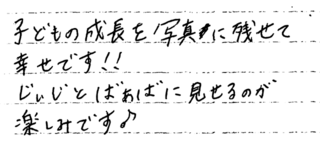 子どもの成長を写真に残せて
幸せです!!
じぃじとばぁばに見せるのが
楽しみです♪